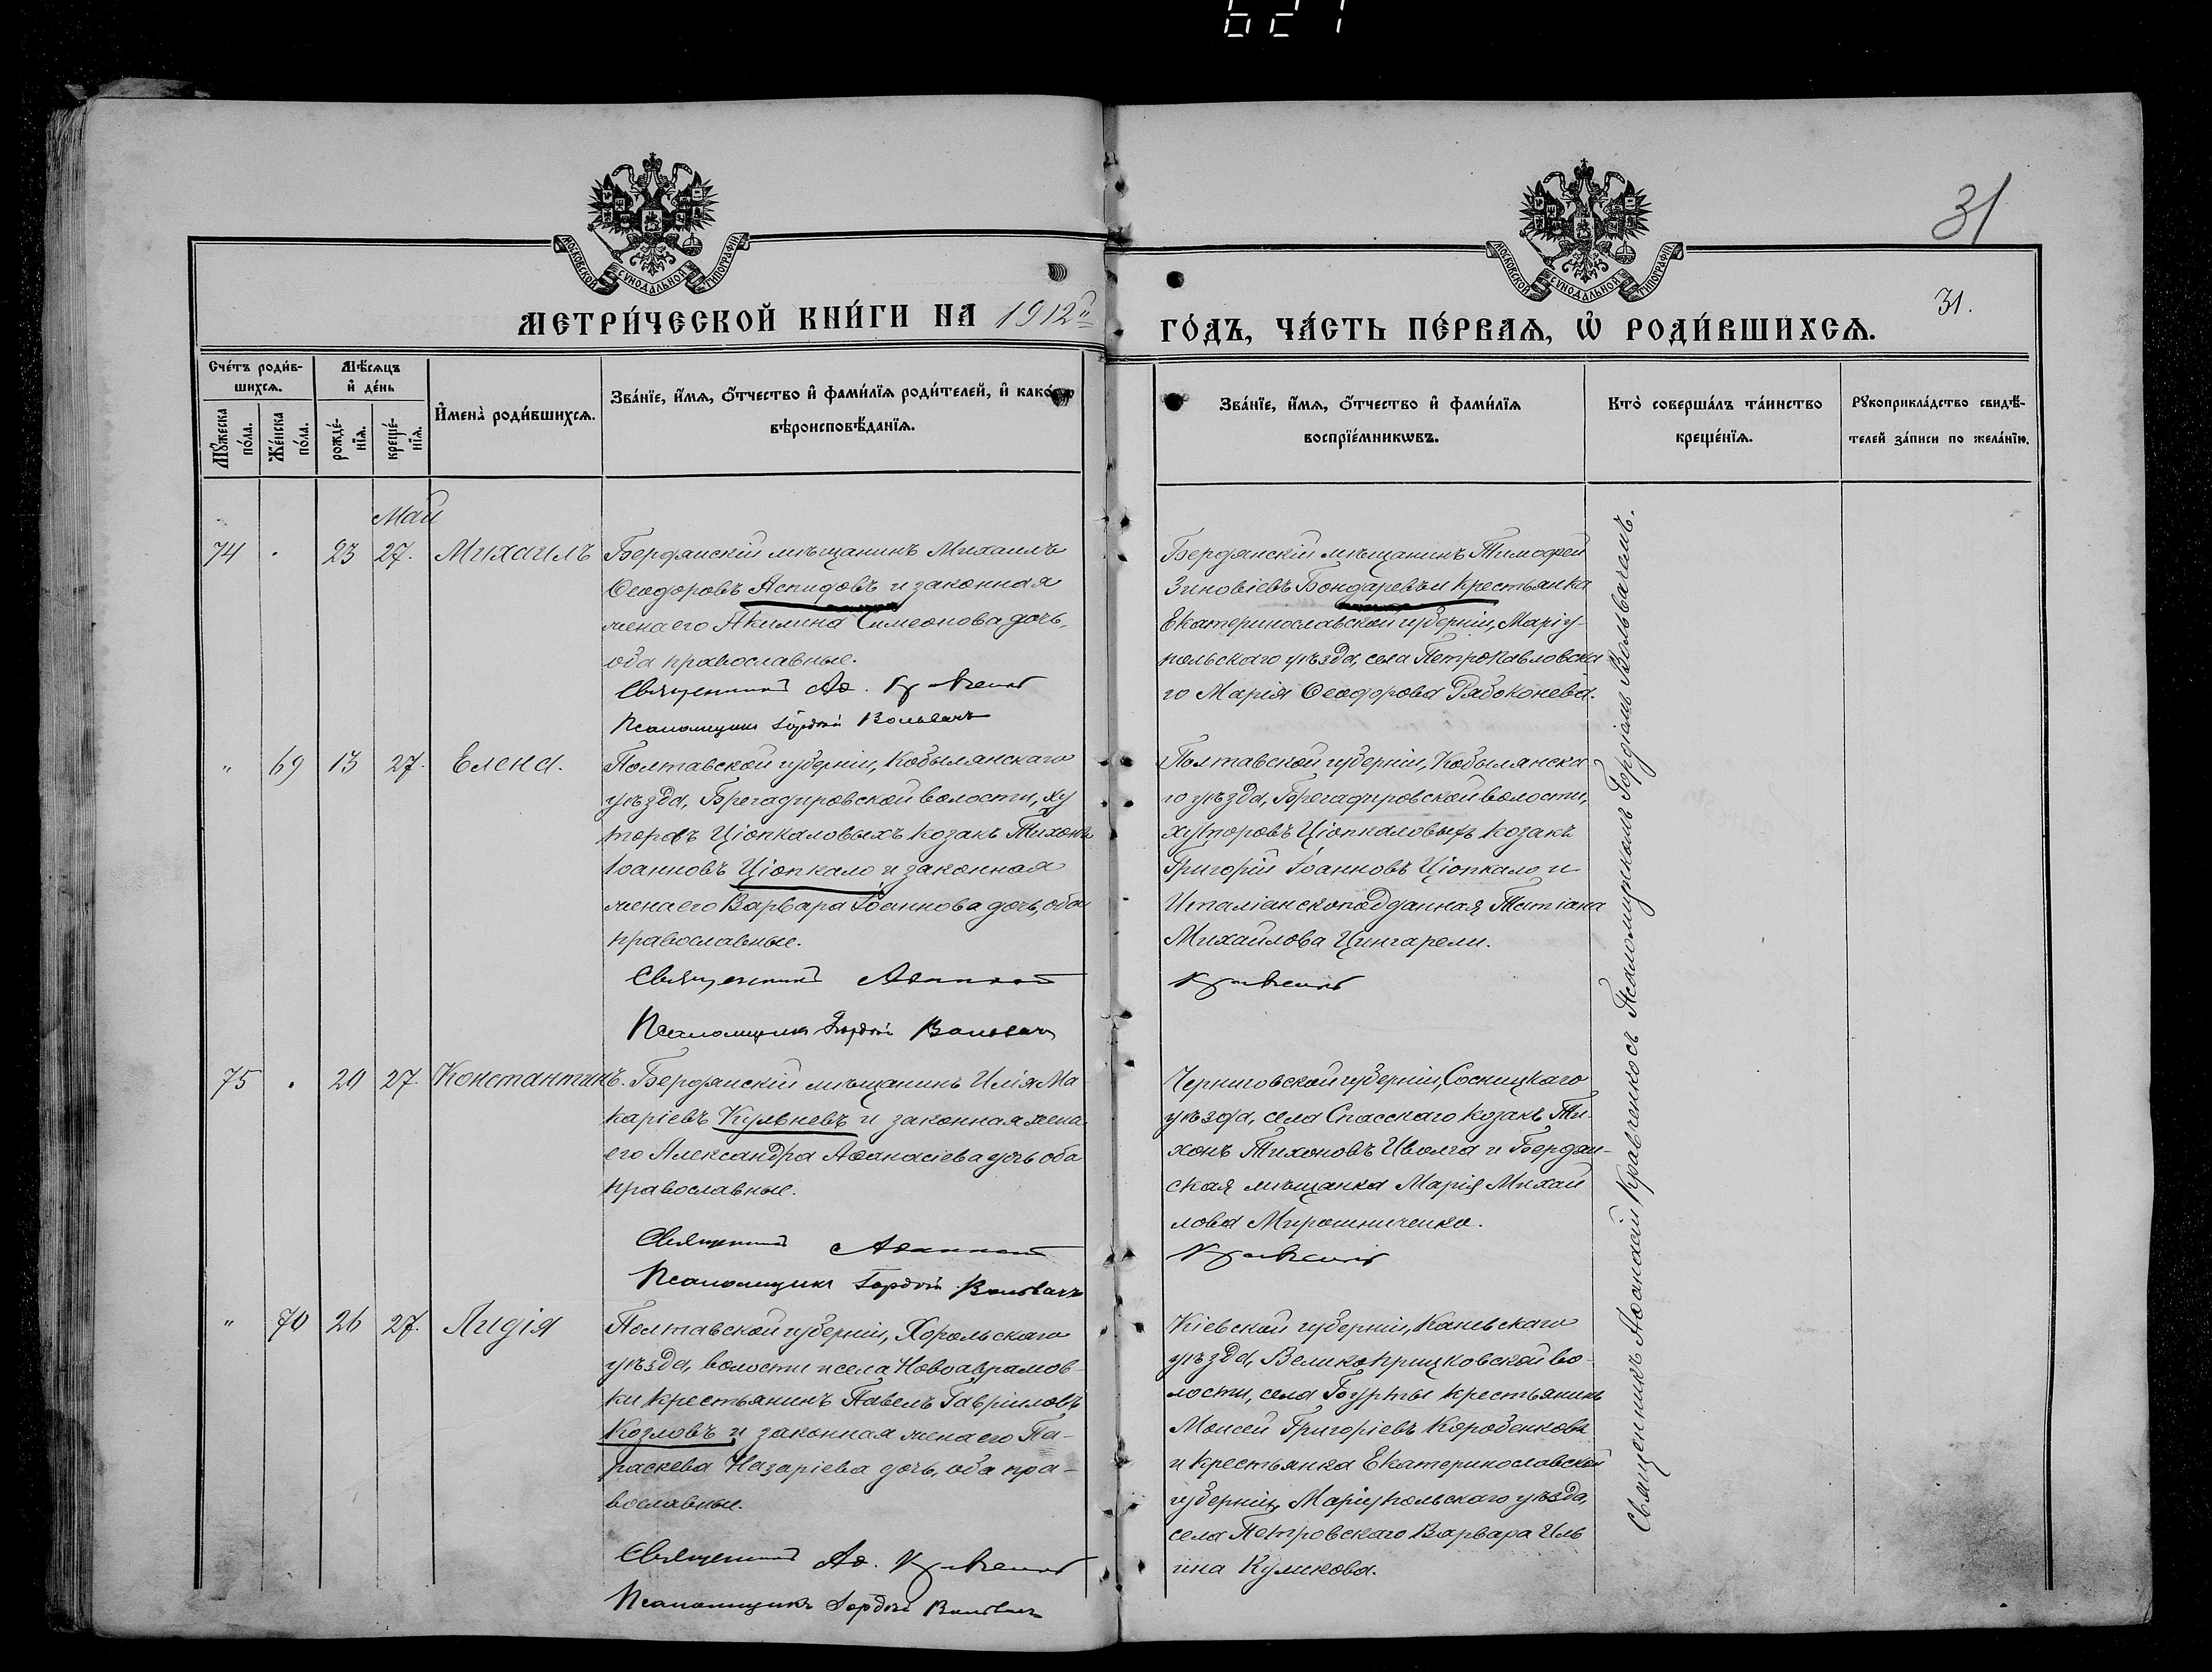 627
31
МОСКОВСКОЙ СУНОДАЛЬНОЙ ТИПОГРАФІИ
МОСКОВСКОЙ СУНОДАЛЬНОЙ ТИПОГРАФІИ
МЕТРИ́ЧЕСКОЙ КНИ́ГИ НА 1912й
ГО́ДЪ, ЧА́СТЬ ПЕ́РВАЯ, Ѡ҆ РОДИ́ВШИХСЯ.
31.
Сче́тъ роди́в-
шихсѧ.
Мѣ́сѧцъ
и҆ де́нь
Мꙋ́жеска
по́ла.
Же́нска
по́ла.
рожде́-
нїѧ.
креще́-
нїѧ.
И҆мена̀ роди́вшихсѧ.
Зва́нїе, и҆́мѧ, ѻ҆́тчество и҆ фами́лїѧ роди́телей, и҆ како́гѡ
вѣроисповѣ́данїѧ.
Зва́нїе, и҆́мѧ, ѻ҆́тчество и҆ фами́лїѧ
воспрїе́мникѡвъ.
Кто̀ соверша́лъ та́инство
креще́нїѧ.
Рꙋкоприкла́дство свидѣ́-
телей за́писи по жела́нїю.
Май
74 . 23 27. Михаилъ
Бердянскій мѣщанинъ Михаилъ
Ѳеодоровъ Аспидовъ и законная
жена его Акилина Симеонова дочь,
оба православные.
Священникъ Аѳ. Кравченко
Псаломщикъ Гордій Вольвачъ
Бердянскій мѣщанинъ Тимофей
Зиновіевъ Бондаревъ и крестьянка
Екатеринославской губерніи, Маріу-
польскаго уѣзда, села Петропавловска
го Марія Ѳеодорова Рябоконева.
" 69 13 27. Елена.
Полтавской губерніи, Кобылянскаго
уѣзда, Брегадировской волости, ху
торовъ Ціопкаловыхъ козакъ Тихонъ
Іоанновъ Ціопкало и законная
жена его Варвара Іоаннова дочь, оба
православные.
Священникъ Аѳанасій
Псаломщикъ Гордій Вольвачъ
Полтавской губерніи, Кобылянска
го уѣзда, Брегадировской волости,
хуторовъ Ціопкаловыхъ козакъ
Григорій Іоанновъ Ціопкало и
Италіанскоподданная Татіана
Михайлова Цингарели.
Кравченко
75 . 20 27. Константинъ.
Бердянскій мѣщанинъ Илія Ма-
каріевъ Кульневъ и законная жена
его Александра Аѳанасіева дочь оба
православные.
Священникъ Аѳанасій
Псаломщикъ Гордій Вольвачъ
Черниговской губерніи, Сосницкаго
уѣзда, села Спасскаго козакъ Ти-
хонъ Тихоновъ Иволга и Бердян-
ская мѣщанка Марія Михай
лова Мирошниченко.
Кравченко
" 70 26 27. Лидія
Полтавской губерніи, Хорольскаго
уѣзда, волости и села Новоаврамов-
ки крестьянинъ Павелъ Гавріиловъ
Козловъ и законная жена его Па-
раскева Назаріева дочь, оба пра-
вославные.
Священникъ Аѳ. Кравченко
Псаломщикъ Гордій Вольвачъ
Кіевской губерніи, Каневскаго
уѣзда, Великоприцковской во-
лости, села Гурты крестьянинъ
Моисей Григоріевъ Коробенковъ
и крестьянка Екатеринославской
губерніи, Маріупольскаго уѣзда,
села Петровскаго Варвара Иль
ина Куликова.
Священникъ Аѳанасій Кравченко съ Псаломщикомъ Гордіемъ Вольвачемъ.